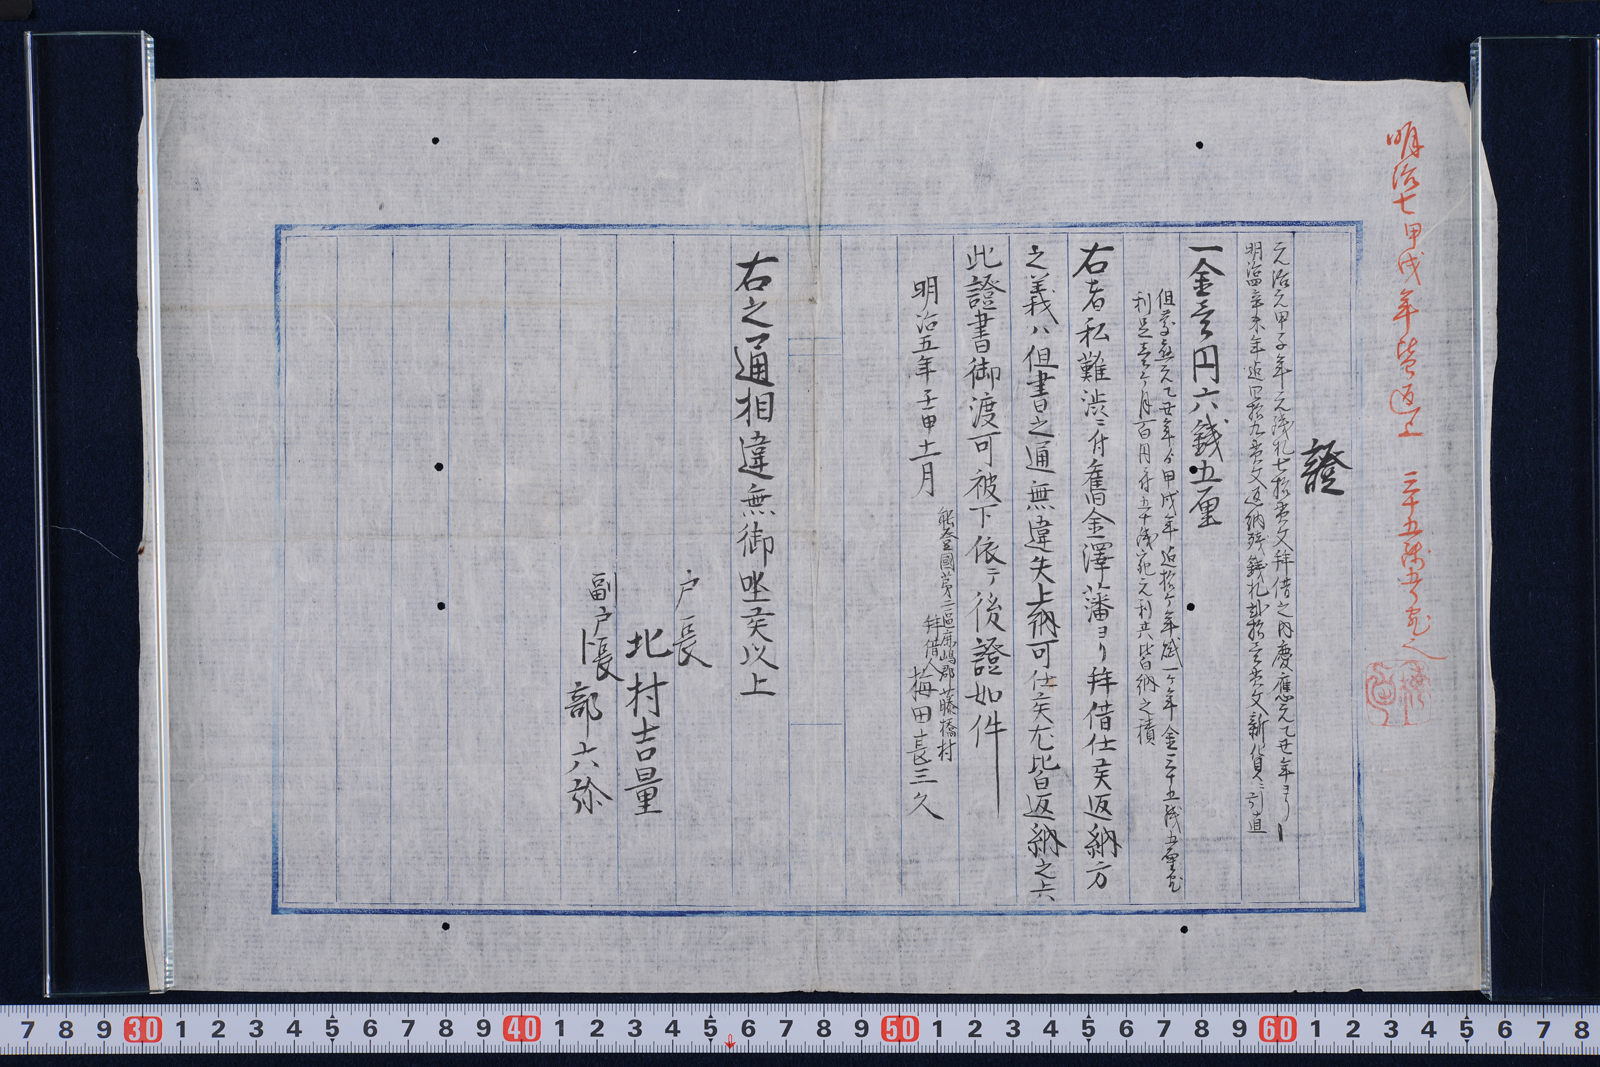 明治七甲戌年皆返上 三十五銭五厘宛之
證
元治元甲子年元銭札七拾貫文拜借之内慶應元乙丑年ヨリ
明治四辛未年迄四拾九貫文返納残銭札弐拾壱貫文新貨ニ引直
一金壱円六銭五厘
但慶應元乙丑年ゟ甲戌年迄拾ケ年賦一ケ年金三十五銭五厘宛
利足壱ケ月百円ニ付五十銭宛元利共皆納之積
右者私難渋ニ付舊金澤藩ヨリ拜借仕候返納方
之義ハ但書之通無違失上納可仕候尤皆返納之上
此證書御渡可被下依テ後證如件
明治五年壬申十一月
能登國第二區鹿嶋郡藤橋村
拜借人 梅田長三久
右之通相違無御坐候以上
戸長
北村吉量
副戸長
卜部六弥